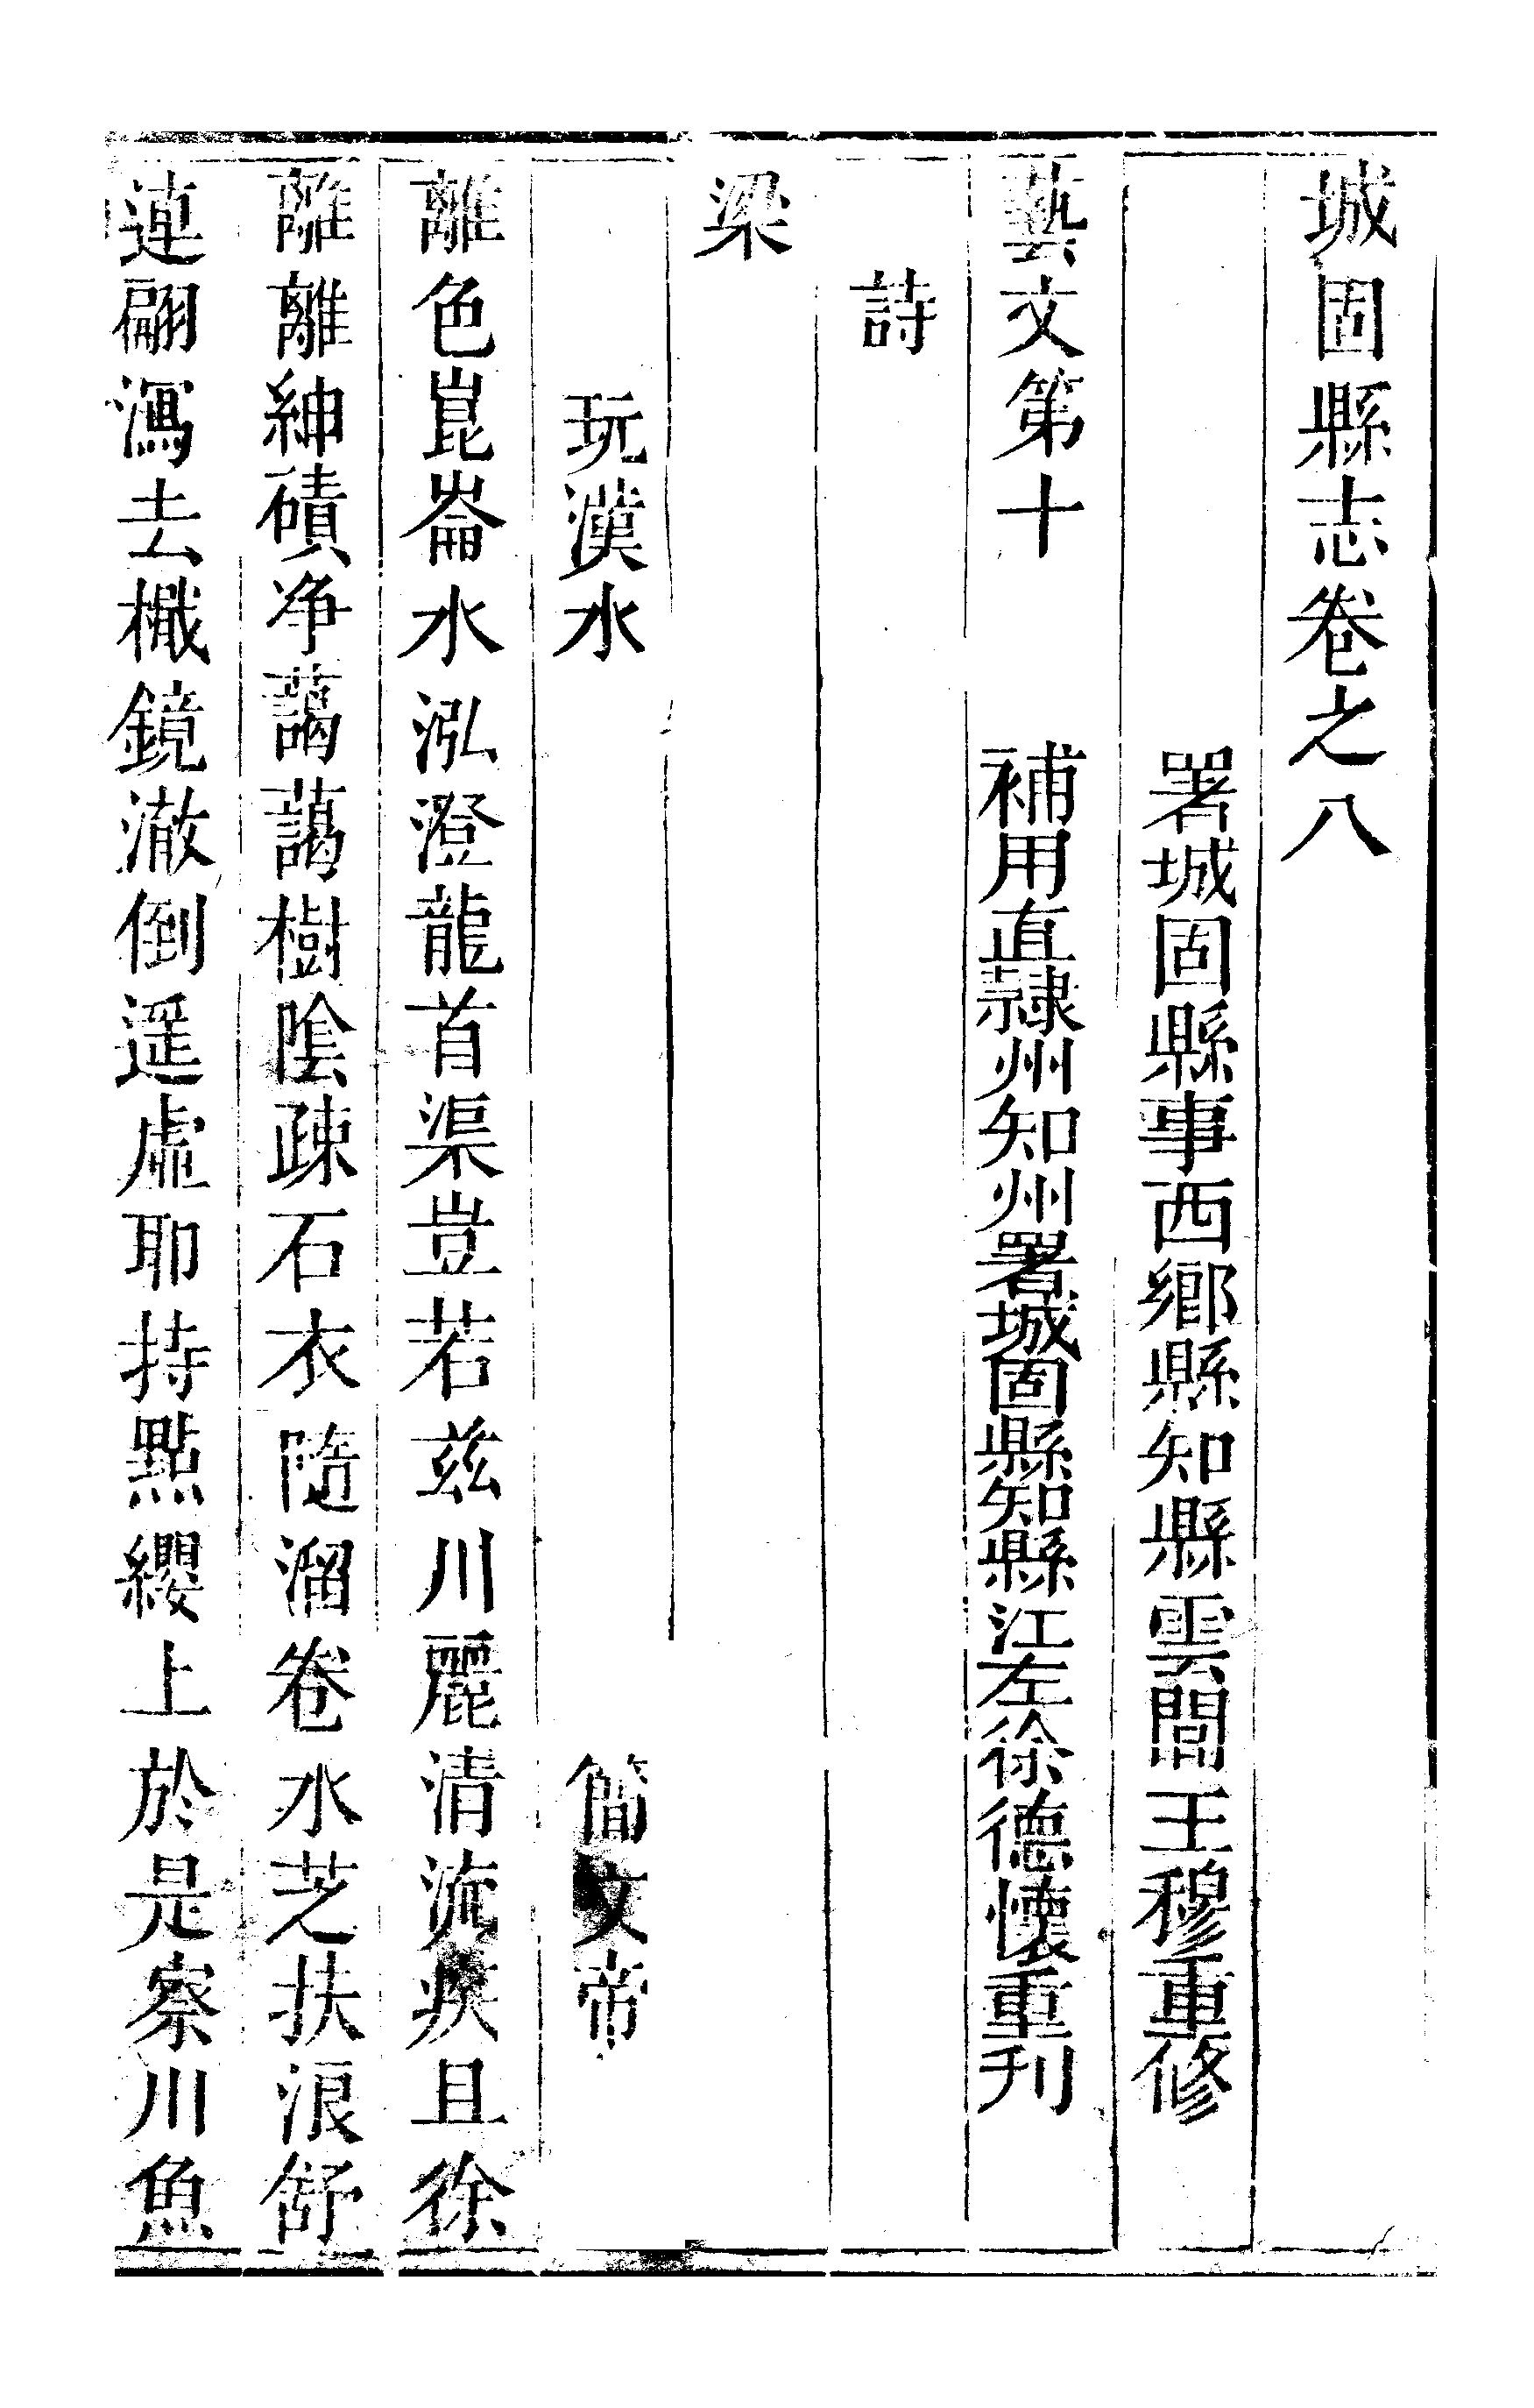 城固縣志卷之八
署城固縣事西鄉縣知縣雲間王穆重修
藝文第十　補用直隸州知州署城固縣知縣江左徐德懷重刊
詩
梁
玩漢水　簡文帝
離色崑崙水泓澄龍首渠豈若茲川麗清流疾且徐
離離紳磧净藹藹樹陰疎石衣隨溜卷水芝扶浪舒
連翩瀉去檝鏡澈倒遥虛耶持點纓上於是察川魚